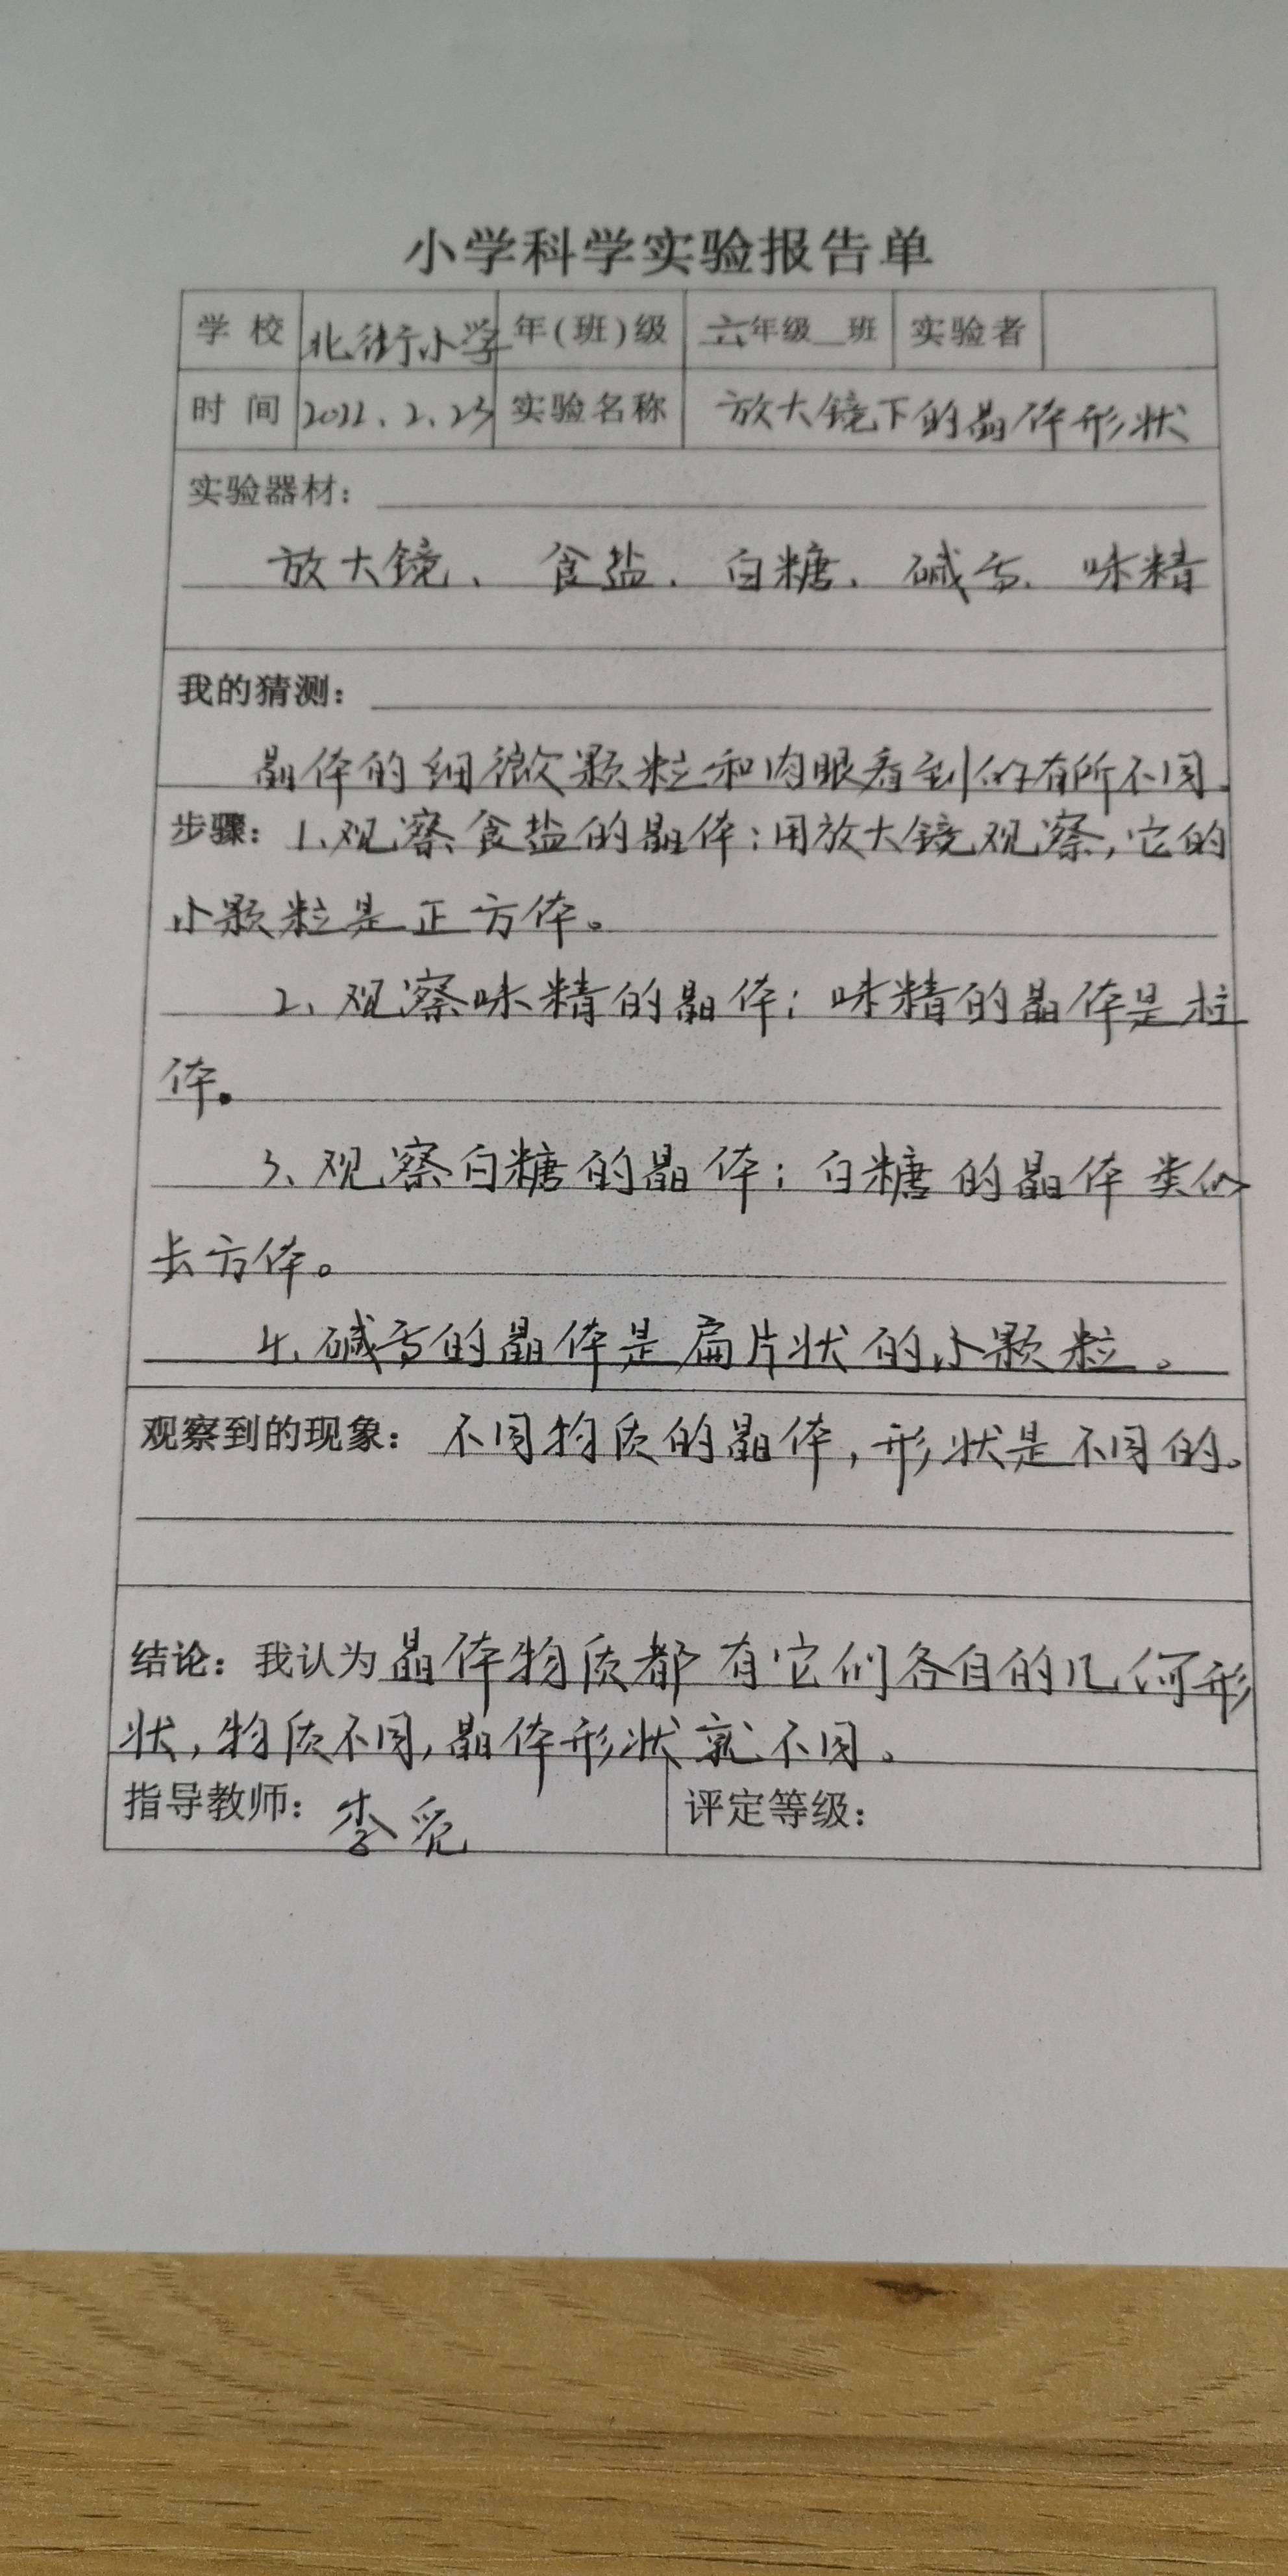 小学科学实验报告单
学校 北街小学 年(班)级 六年级__班 实验者
时间 2022.2.23 实验名称 放大镜下的晶体形状
实验器材:
放大镜、食盐、白糖、碱面、味精
我的猜测:
晶体的细微颗粒和肉眼看到的有所不同.
步骤: 1、观察食盐的晶体:用放大镜观察,它的
小颗粒是正方体。
2、观察味精的晶体:味精的晶体是柱
体.
3、观察白糖的晶体:白糖的晶体类似
长方体。
4、碱面的晶体是扁片状的小颗粒。
观察到的现象: 不同物质的晶体,形状是不同的。
结论: 我认为晶体物质都有它们各自的几何形
状,物质不同,晶体形状就不同。
指导教师: 李 评定等级: